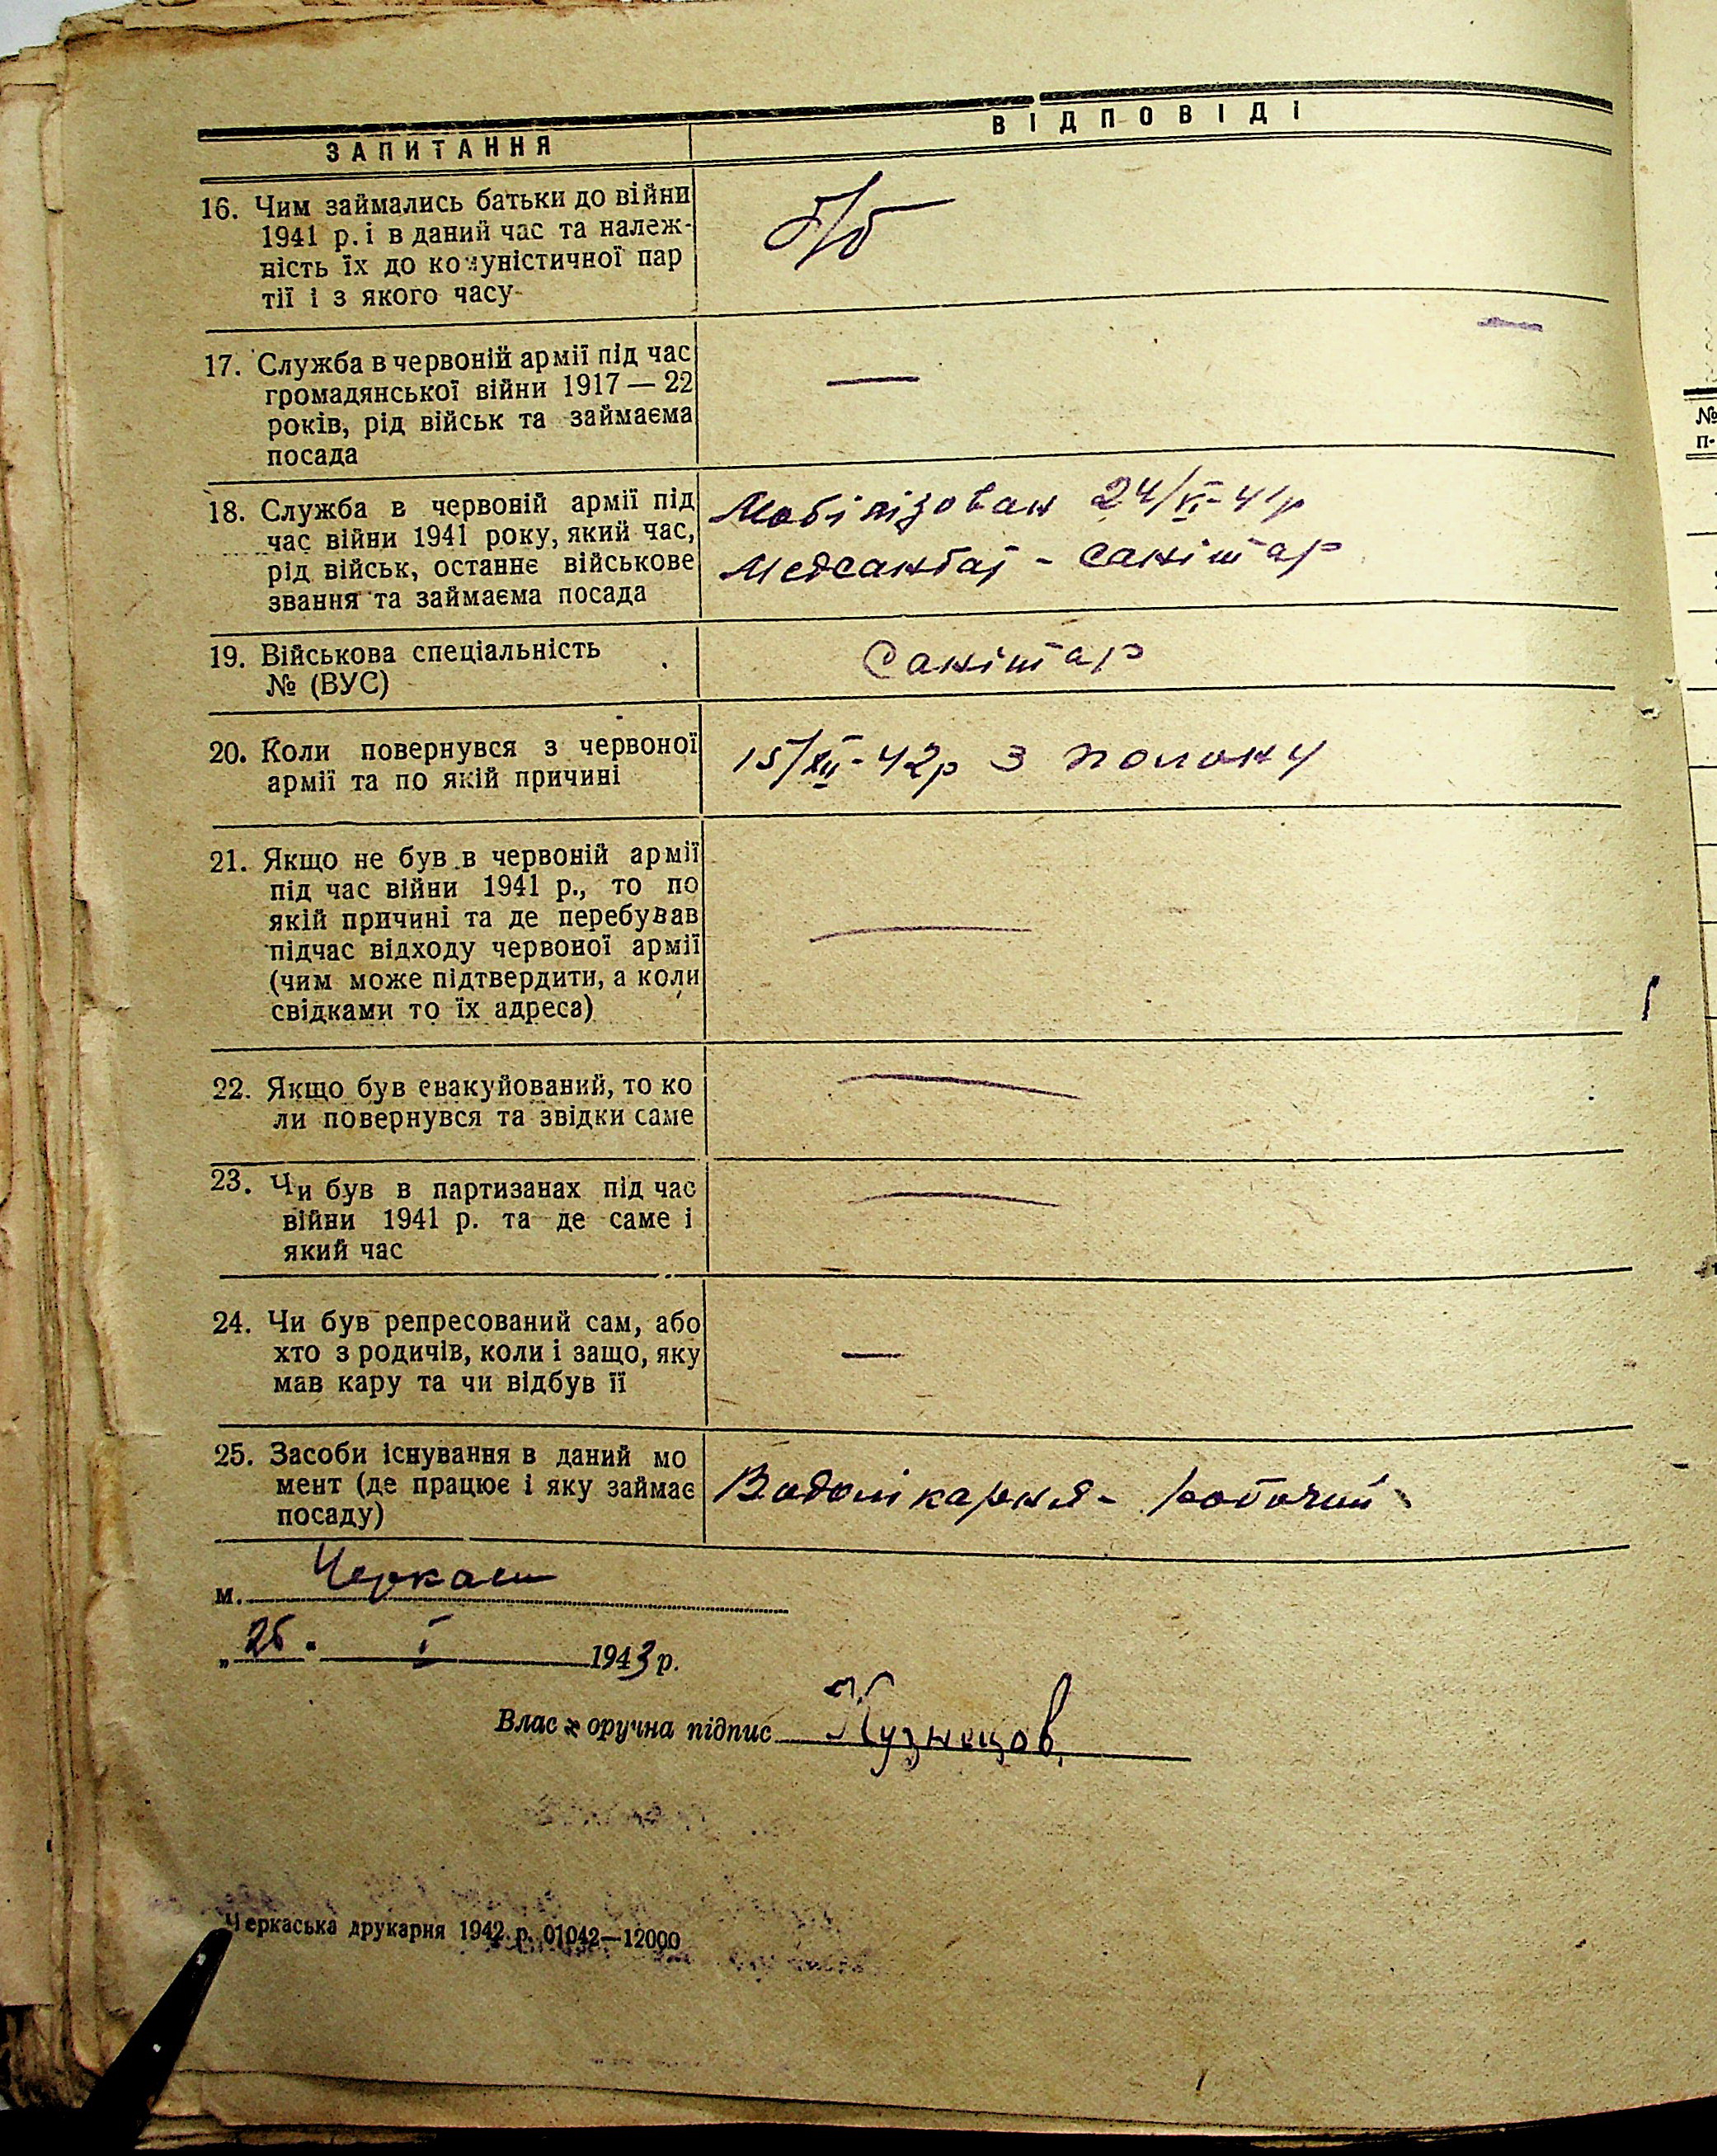 ЗАПИТАННЯ
ВІДПОВІДІ
16. Чим займались батьки до війни
1941 р. і в даний час та належ-
ність їх до комуністичної пар
тії і з якого часу
б/б
17. Служба в червоній армії під час
громадянської війни 1917 — 22
років, рід військ та займаєма
посада
—
18. Служба в червоній армії під
час війни 1941 року, який час,
рід військ, останнє військове
звання та займаєма посада
Мобілізован 24/VI-41р
Медсанбат - санітар
19. Військова спеціальність
№ (ВУС)
Санітар
20. Коли повернувся з червоної
армії та по якій причині
15/XII-42р з полону
21. Якщо не був в червоній армії
під час війни 1941 р., то по
якій причині та де перебував
підчас відходу червоної армії
(чим може підтвердити, а коли
свідками то їх адреса)
—
22. Якщо був евакуйований, то ко
ли повернувся та звідки саме
—
23. Чи був в партизанах під час
війни 1941 р. та де саме і
який час
—
24. Чи був репресований сам, або
хто з родичів, коли і защо, яку
мав кару та чи відбув її
—
25. Засоби існування в даний мо
мент (де працює і яку займає
посаду)
Водолікарня - робочий
м. Черкаси
„26" I 1943 р.
Власноручна підпис Кузнецов
Черкаська друкарня 1942 р. 01042—12000
№
п-